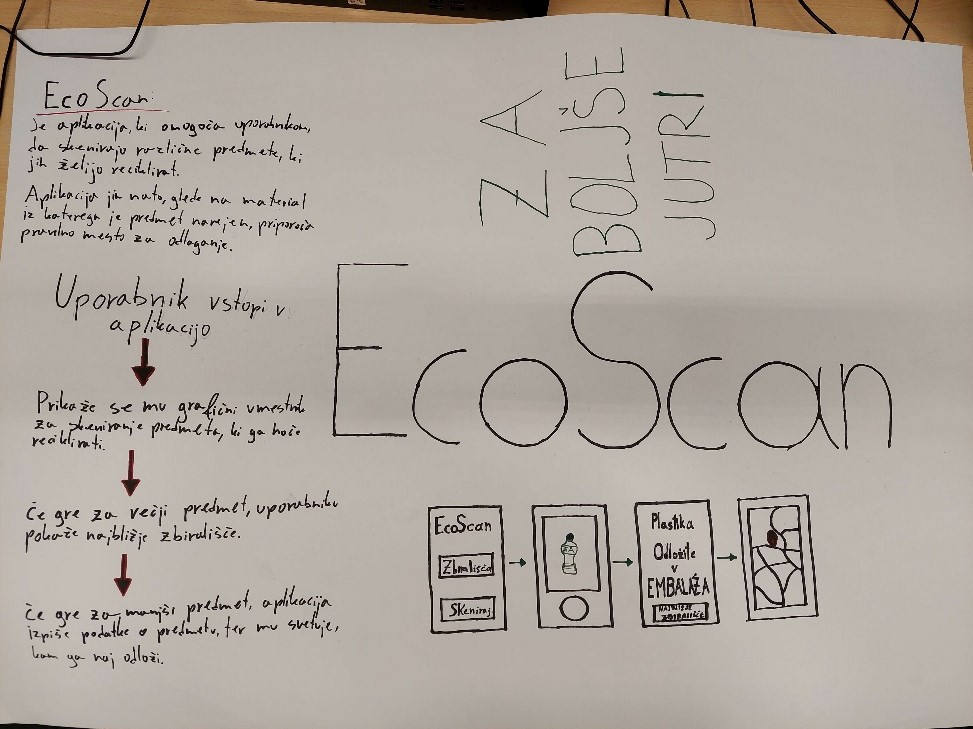 EcoScan
Je aplikacija, ki omogoča uporabnikom,
da skenirajo različne predmete, ki
jih želijo reciklirat.
Aplikacija jih nato, glede na material
iz katerega je predmet narejen, priporoča
pravilno mesto za odlaganje.
Uporabnik vstopi v
aplikacijo
Prikaže se mu grafični vmestnik
za skeniranje predmeta, ki ga hoče
reciklirati.
Če gre za večji predmet, uporabniku
pokaže najbližje zbirališče.
Če gre za manjši predmet, aplikacija
izpiše podatke o predmetu, ter mu svetuje,
kam ga naj odloži.
ZA
BOLJŠE
JUTRI
EcoScan
EcoScan
Zbirališča
Skeniraj
Plastika
Odložite
v
EMBALAŽA
NAJBLIŽJE
ZBIRALIŠČE